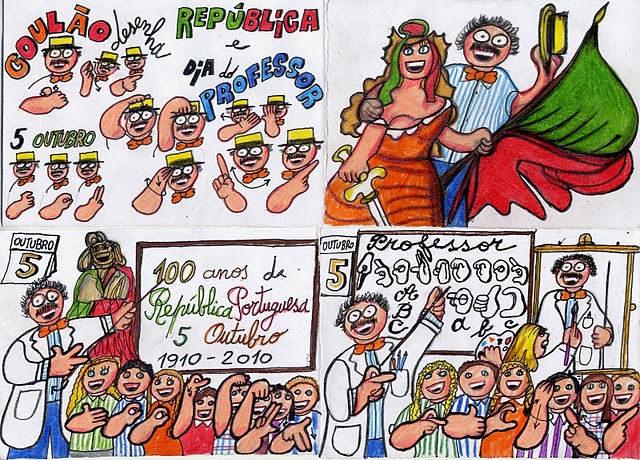 GOULÃO desenha
REPÚBLICA
e
DIA do
PROFESSOR
5 OUTUBRO
OUTUBRO
5
100 anos da
República Portuguesa
5 Outubro
1910-2010
OUTUBRO
5
Professor
A
B
C
a b c